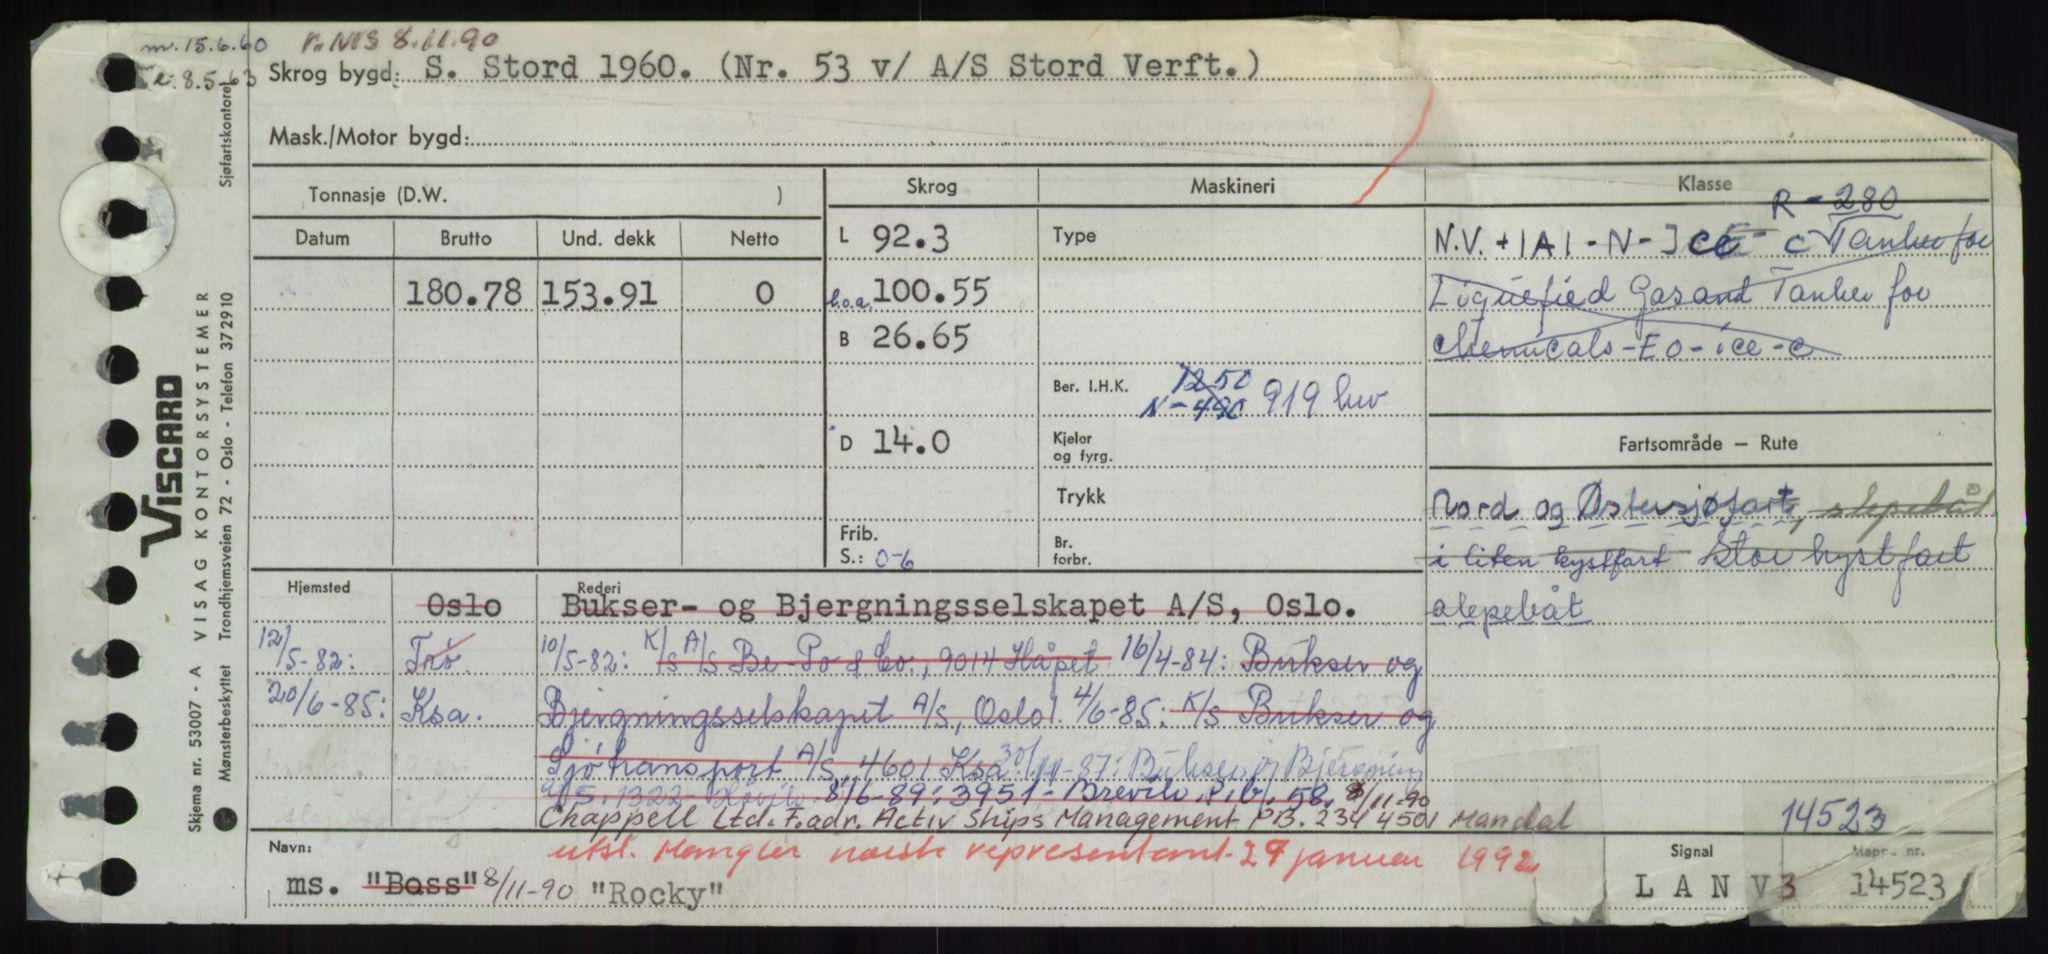 m. 15.6.60 r. NIS 8.11.90
e. 8.5-63 Skrog bygd: S. Stord 1960. (Nr. 53 v/ A/S Stord Verft.)
Mask./Motor bygd:
Sjøfartskontoret
VISCARD
VISAG KONTORSYSTEMER
Skjema nr. 53007 - A
Mønsterbeskyttet Trondhjemsveien 72 - Oslo - Telefon 372910
Tonnasje (D.W. ) Skrog Maskineri Klasse
Datum Brutto Und. dekk Netto
180.78 153.91 0
L 92.3
l.o.a. 100.55
B 26.65
D 14.0
Frib.
S.: 0-6
Type
Ber. I.H.K. 1250
N-490 919 kw
Kjeler
og fyrg.
Trykk
Br.
forbr.
R-280
N.V. +1A1-N-Ice C Tanker for
Liquefied Gas and Tanker for
chemicals-EO-ice-c
Fartsområde — Rute
Nord og Østersjøfart, slepebåt
i liten kystfart Stor kystfart
slepebåt
Hjemsted Rederi
Oslo Bukser- og Bjergningsselskapet A/S, Oslo.
12/5-82: Trö. 10/5-82: K/S A/S Be-Po & Co., 9014 Håpet 16/4-84: Bukser og
20/6-85: Ksa. Bjergningsselskapet A/S, Oslo. 4/6-85: K/S Bukser og
Sjötransport A/S, 4601 Ksa 30/ -87: Bukser og Bjergning
A/S, 1322- Høvik. 8/6-89: 3951 - Brevik, P.b. 58. 8/11-90
Chappell Ltd. F.adr. Activ Ships Management P.B. 234 4501 Mandal
14523
utsl. Mangler norsk representant 27 januar 1992
Navn:
ms. "Bass" 8/11-90 "Rocky"
Signal
L A N V 3
Mappe nr.
14523